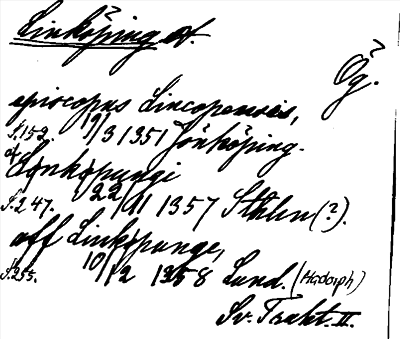 Linköping st.
Ög.
episcopus Lincopensis,
S.152. 19/3 1351 Jönköping.
af Lynkøpungi
S.247. 22/11 1357 Sthlm (?).
aff Linköpunge,
S.255. 10/12 1358 Lund. (Hadorph)
Sv. Trakt. II.